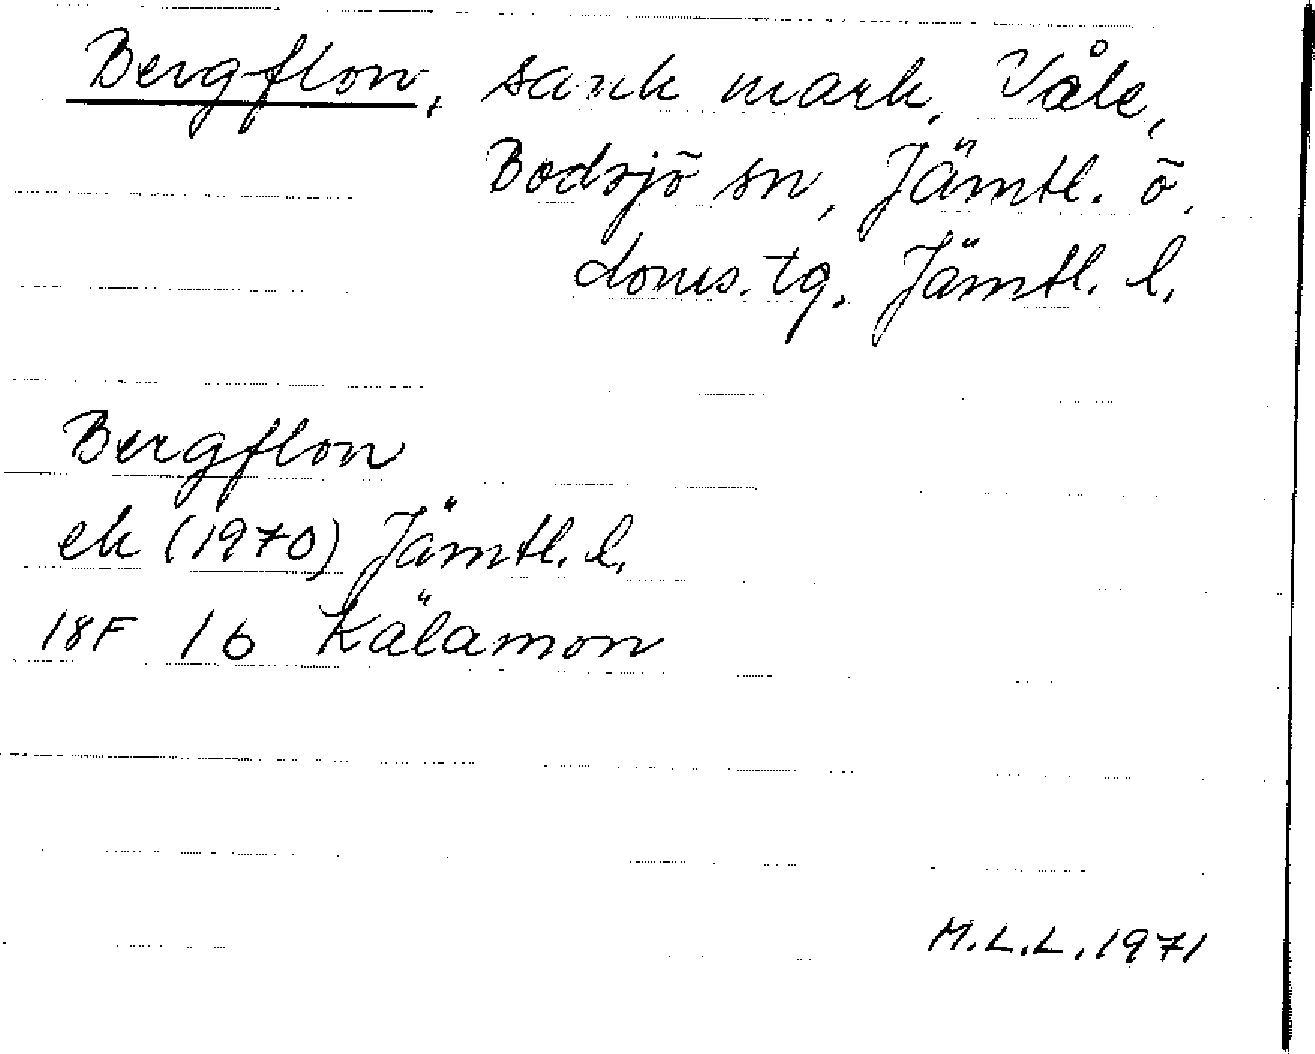 Bergflon, sank mark, Våle,
Bodsjö sn, Jämtl. ö.
doms.tg. Jämtl. l.
Bergflon
ek (1970) Jämtl. l.
18F 1b Kälamon
M.L.L. 1971